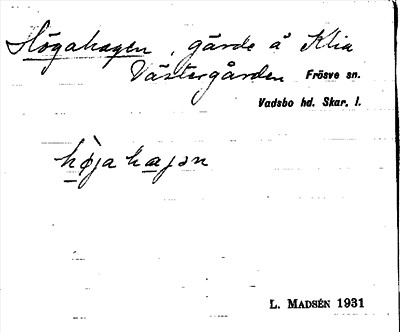 Högahagen, gärde å Klia
Västergården Frösve sn.
Vadsbo hd. Skar. l.
höja hajən
L. MADSÉN 1931